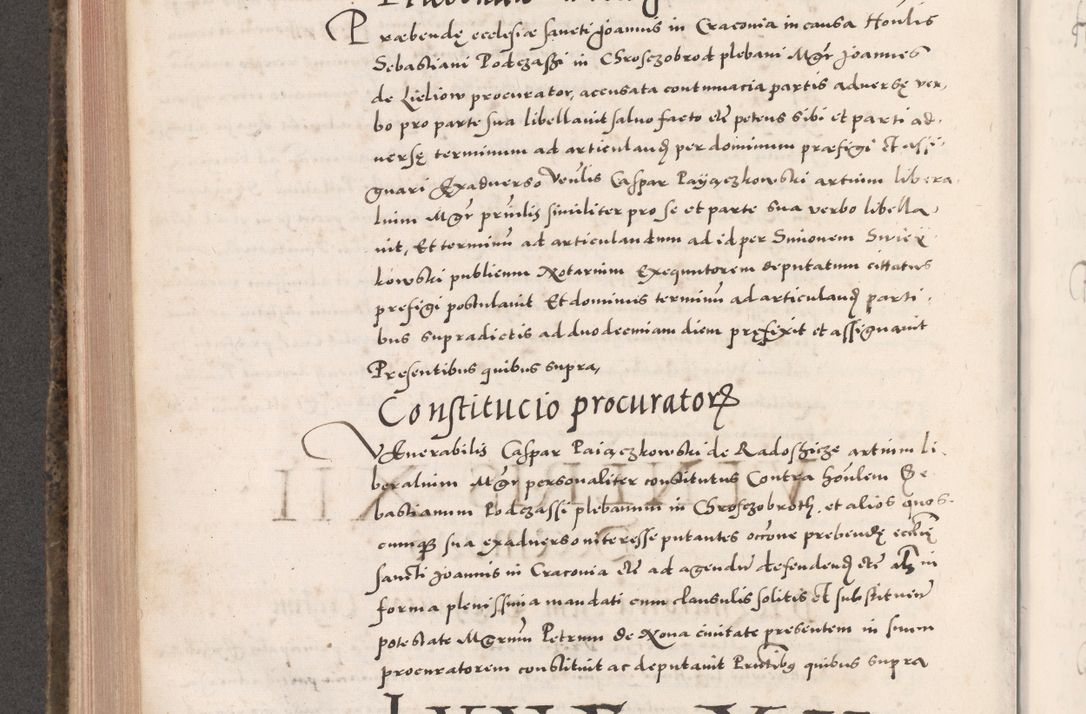 Præbendę ecclesiæ sancti Joannis in Craconia in causa Honlis
Sebastiani Podczaszi in Chrosczobrod plebani Mgr Joannes
de Lieliow procurator, accusata contumacia partis adversę ver,
bo pro parte sua libellavit salvo facto etc petens sibi et parti ad,
versę terminum ad articuland per dominum præfigi et assi
gnari Exadverso Venlis Caspar Paiączkowski artium libera
lium Mgr prinilis similiter pro se et parte sua verbo libella,
vit, Et terminu ad articulandum ad id per Simonem Swież
kowski publicum Notarium Exequutorem deputatum cittatus
prefigi postulavit Et dominus terminu ad articuland parti,
bus supradictis ad duodecimam diem pręfixit et assignavit
Presentibus quibus supra,
Constitucio procurator
Venerabilis Caspar Paiączkowski de Radoszicze artium li,
beralium Mgr personaliter constitutus Contra honlem Se
bastianum Podczassi plebanum in Chrosczobroth, et alios quos,
cumq sua exadverso interesse putantes occone prebendę ecclie
sancti Joannis in Craconia etc ad agendu defendend etc in
forma plenissima mandati cum clausulis solitis et substituen
potestate Mgrum Petrum de Nova civitate presentem in suum
procuratorem constituit ac deputavit Prntibus quibus supra